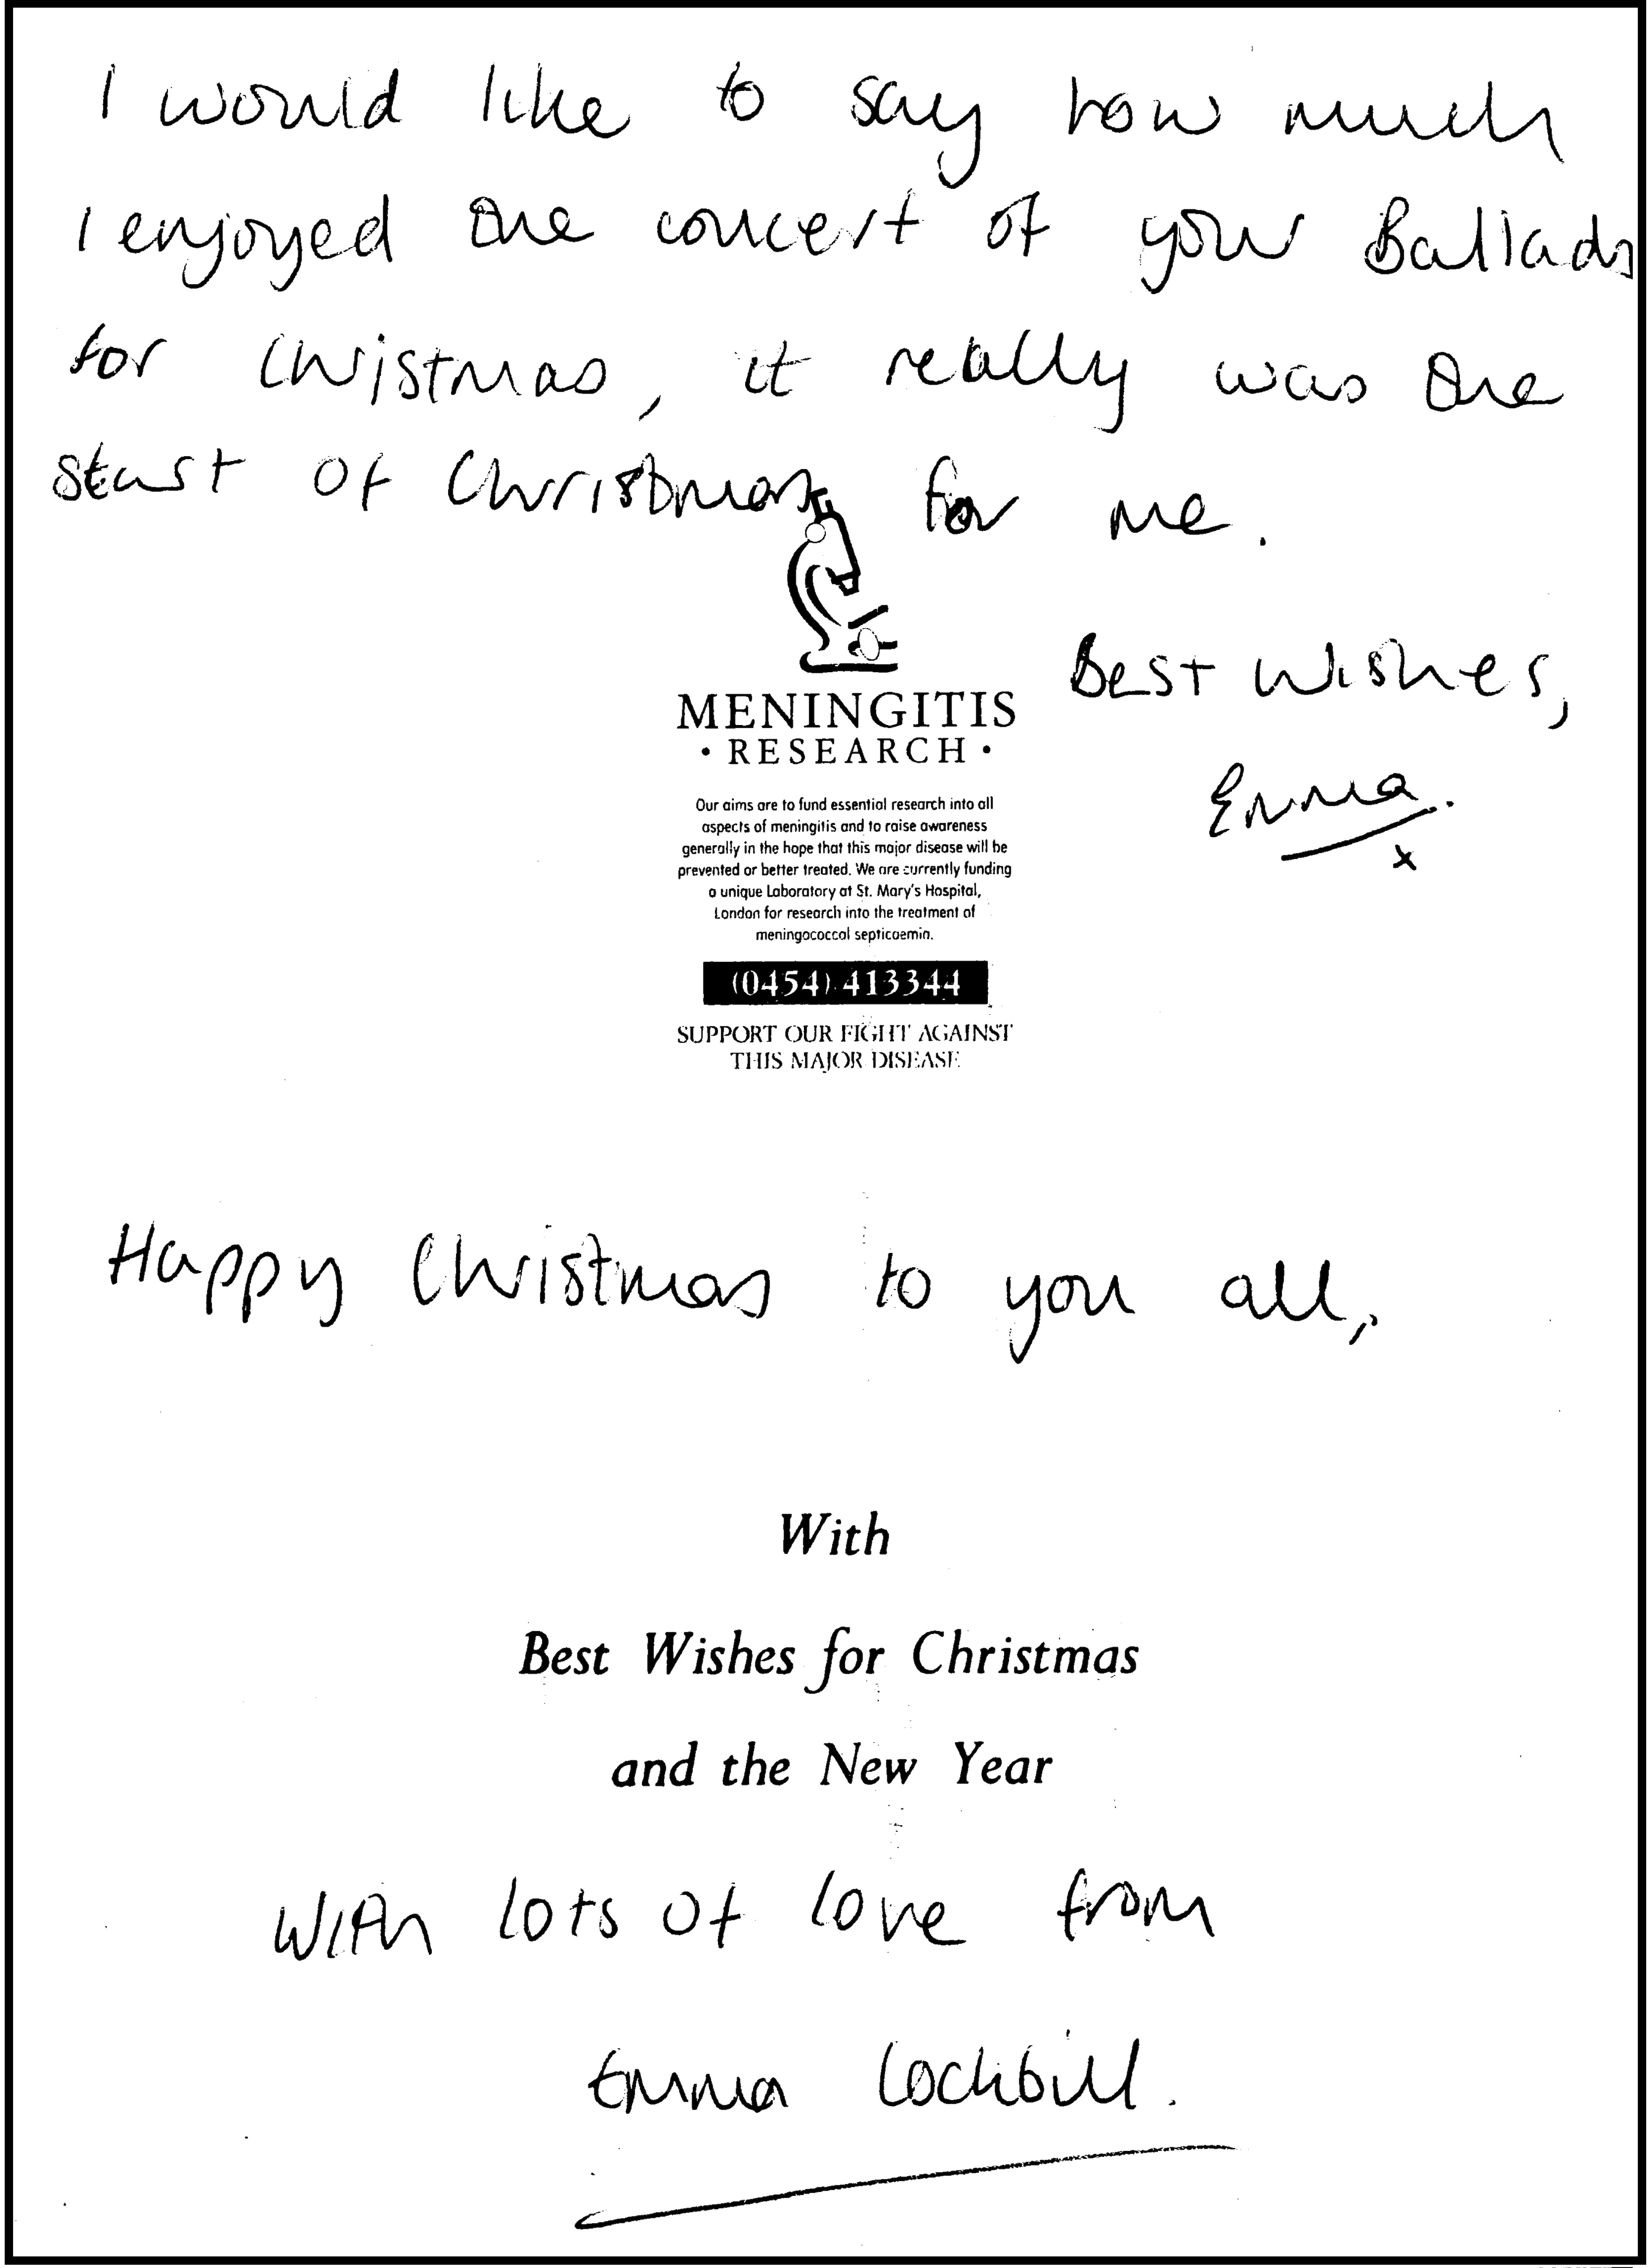 I would like to say how much
I enjoyed the concert of your Ballads
for Christmas, it really was the
start of Christmas for me.
Best Wishes,
Emma.
x
MENINGITIS
• RESEARCH •
Our aims are to fund essential research into all
aspects of meningitis and to raise awareness
generally in the hope that this major disease will be
prevented or better treated. We are currently funding
a unique Laboratory at St. Mary's Hospital,
London for research into the treatment of
meningococcal septicaemia.
(0454) 413344
SUPPORT OUR FIGHT AGAINST
THIS MAJOR DISEASE
Happy Christmas to you all,
With
Best Wishes for Christmas
and the New Year
With lots of love from
Emma Lockbill.